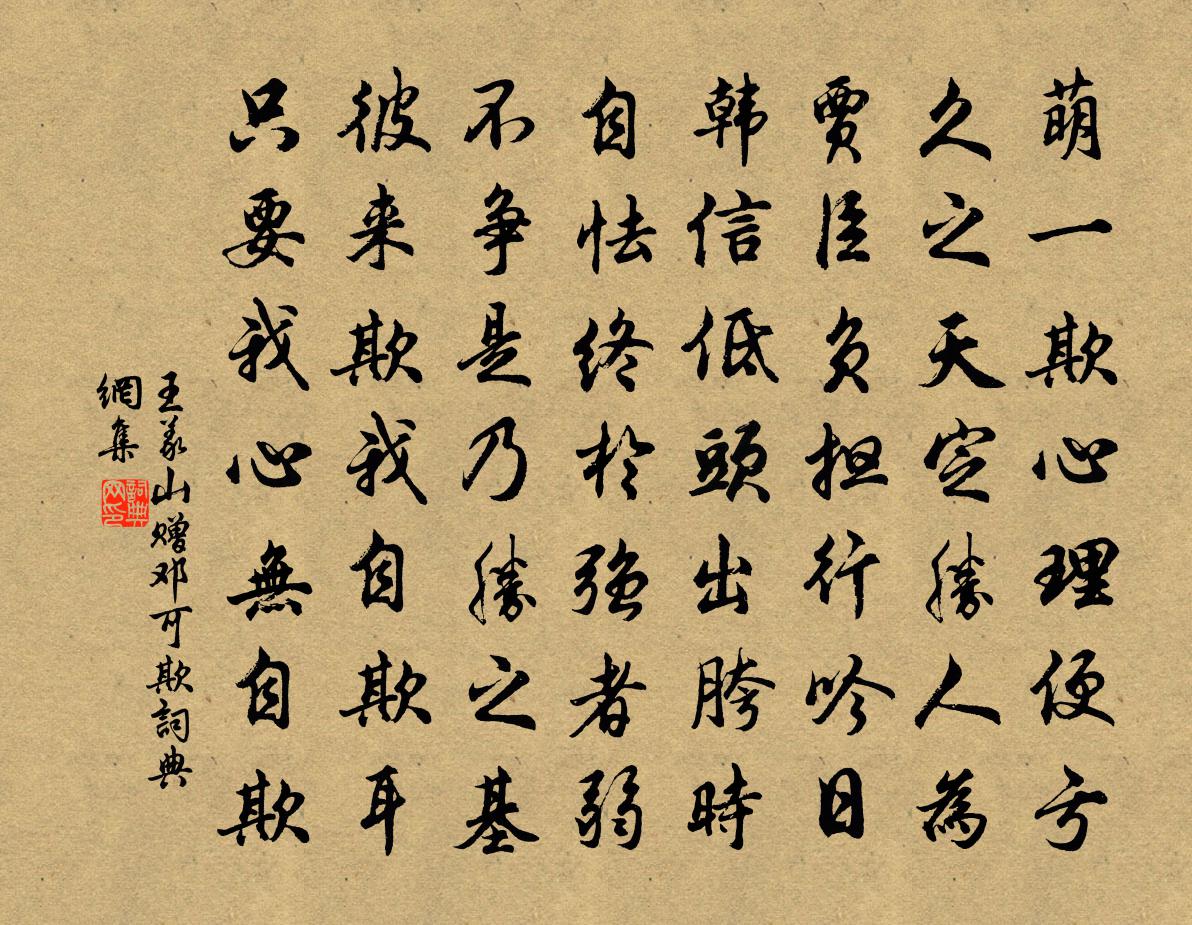 萌一欺心理便亏
久之天定勝人為
贾臣负担行吟日
韩信低頭出胯時
自怯终於强者弱
不争是乃勝之基
彼来欺我自欺耳
只要我心無自欺
王義山赠邓可欺詞典
網集
詞典
网印